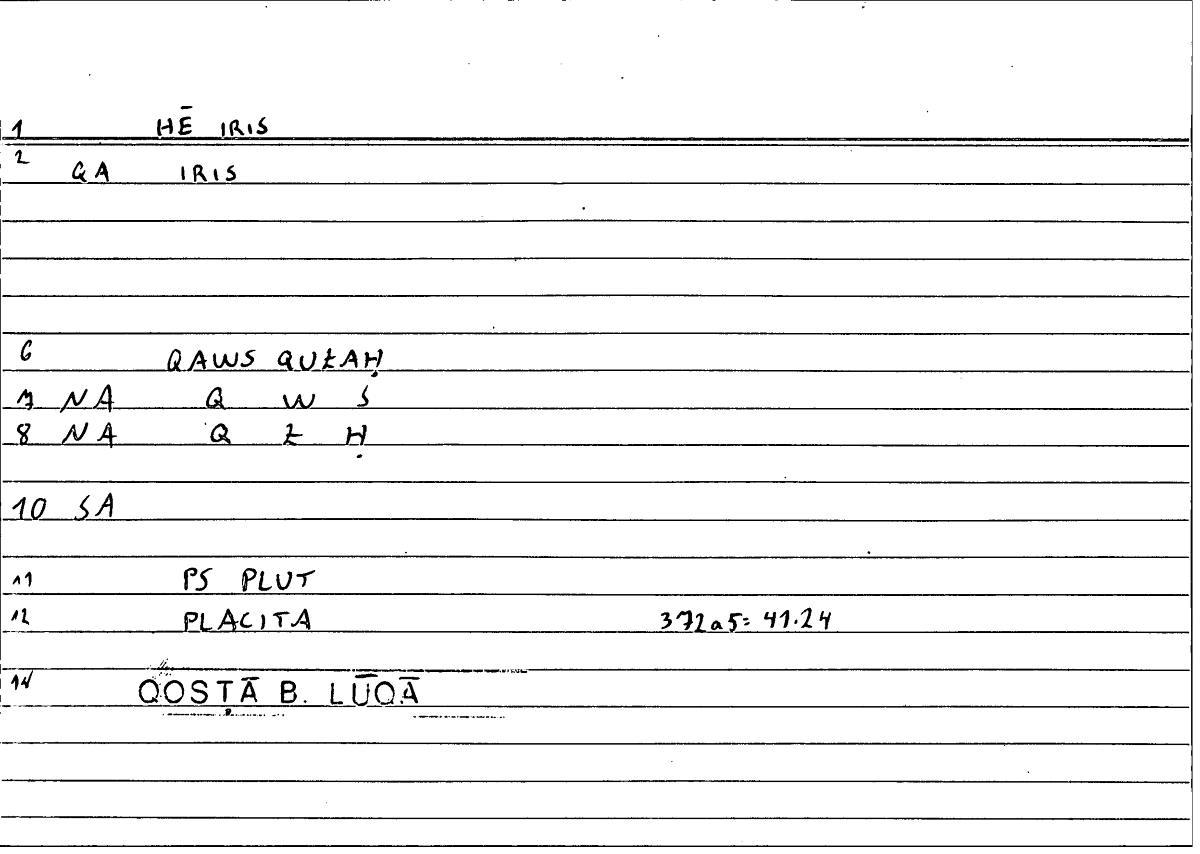 1 HĒ IRIS
2 GA IRIS
6 QAWS QUZAḤ
7 NA Q W S
8 NA Q Z Ḥ
10 SA
11 PS PLUT
12 PLACITA 372a5= 41.24
14 QOSṬĀ B. LŪQĀ